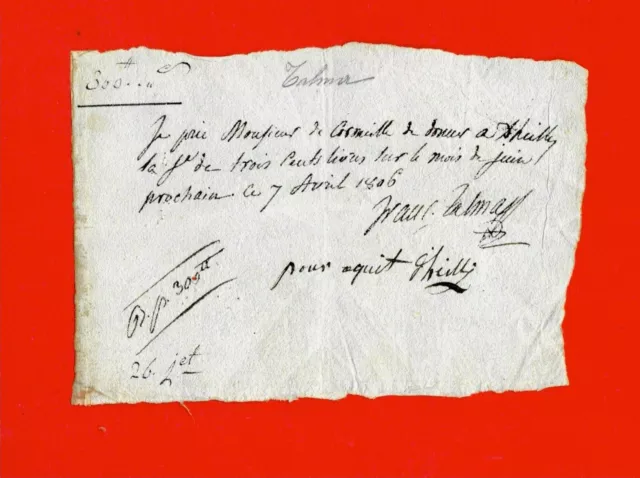 300 ₶ .. " s
Talma
Je prie Monsieur de Cormeille de donner a d'heilly
la Se de trois Cents livres sur le mois de juin
prochain ce 7 Avril 1806
franc. Talma
pour aquit d'heilly
Bp. pr 300 ₶
26. jet